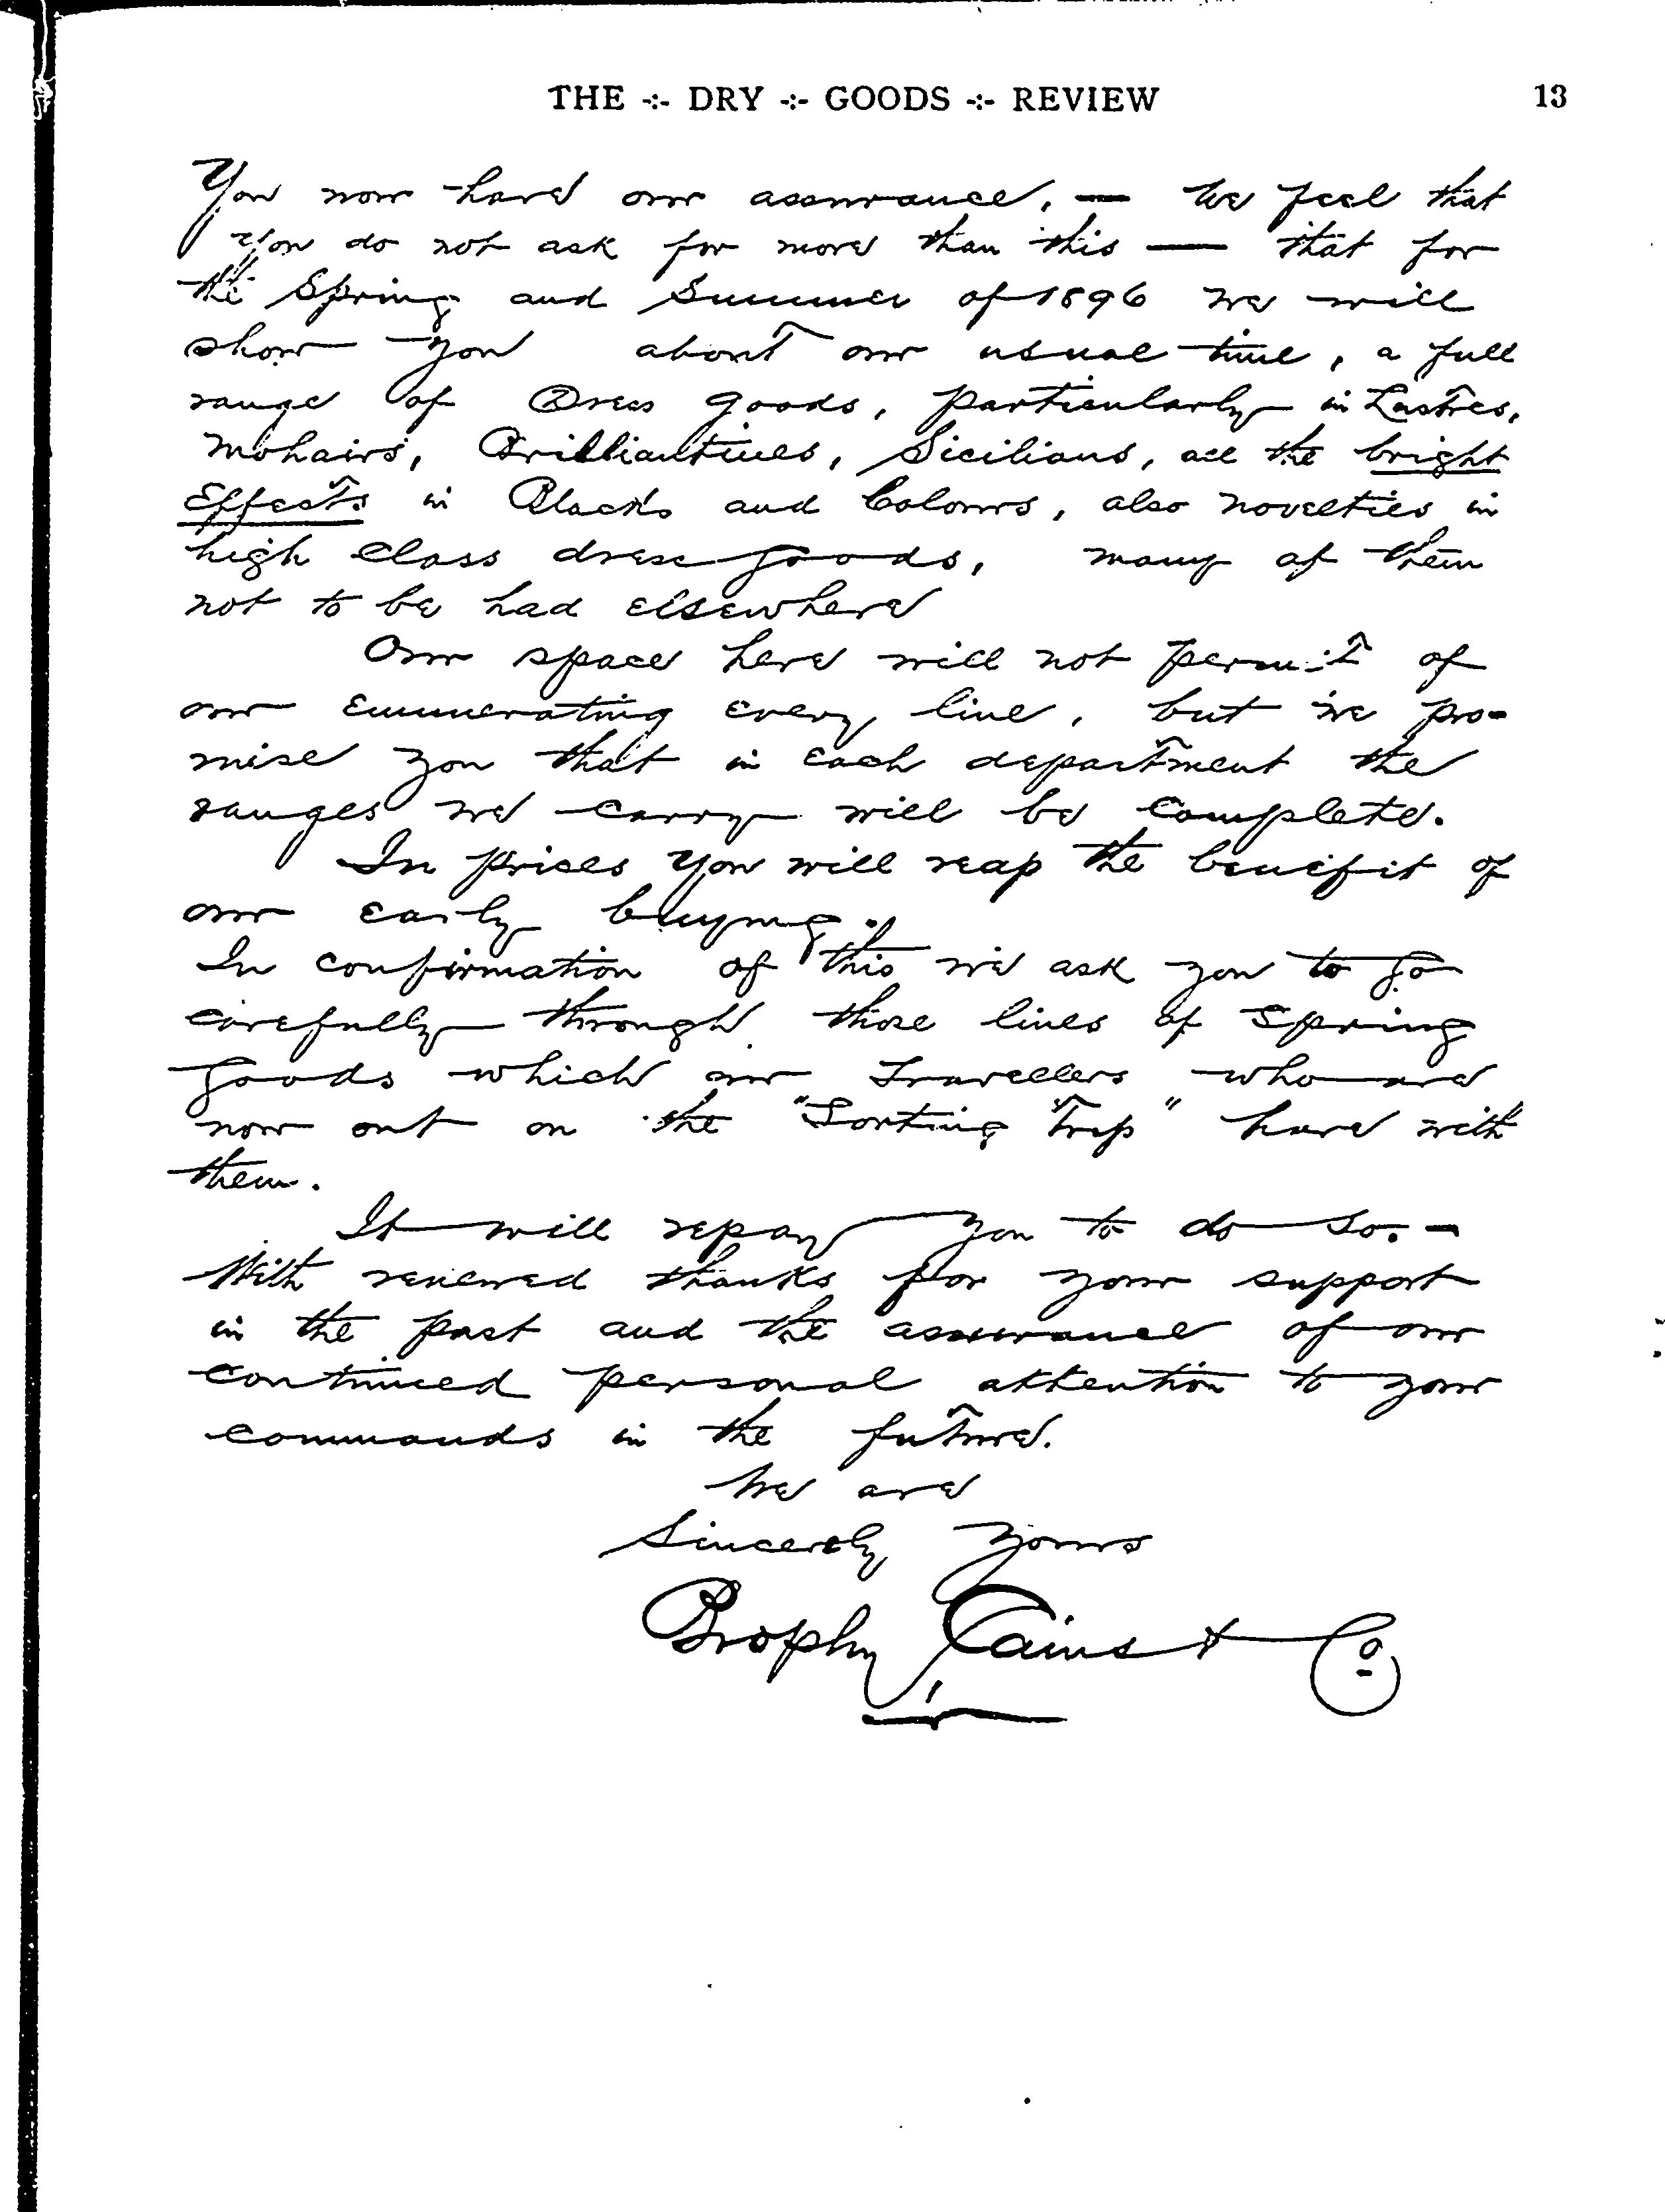 THE -:- DRY -:- GOODS -:- REVIEW 13
You now have our assurance, — We feel that
you do not ask for more than this — that for
the Spring and Summer of 1896 we will
show you about our usual time, a full
range of Dress goods, particularly in Lustres,
Mohairs, Brilliantines, Sicilians, all the bright
Effects in Blacks and Colours, also novelties in
high Class dress goods, many of them
not to be had elsewhere
Our space here will not permit of
our enumerating every line, but we pro-
mise you that in each department the
ranges we carry will be complete.
In prices you will reap the benefit of
our early buying.
In confirmation of this we ask you to go
carefully through those lines of Spring
Goods which our Travellers who are
now out on the "Sorting Trip" have with
them.
It will repay you to do so. -
With renewed thanks for your support
in the past and the assurance of our
continued personal attention to your
commands in the future.
We are
Sincerely Yours
Brophy Cains & Co